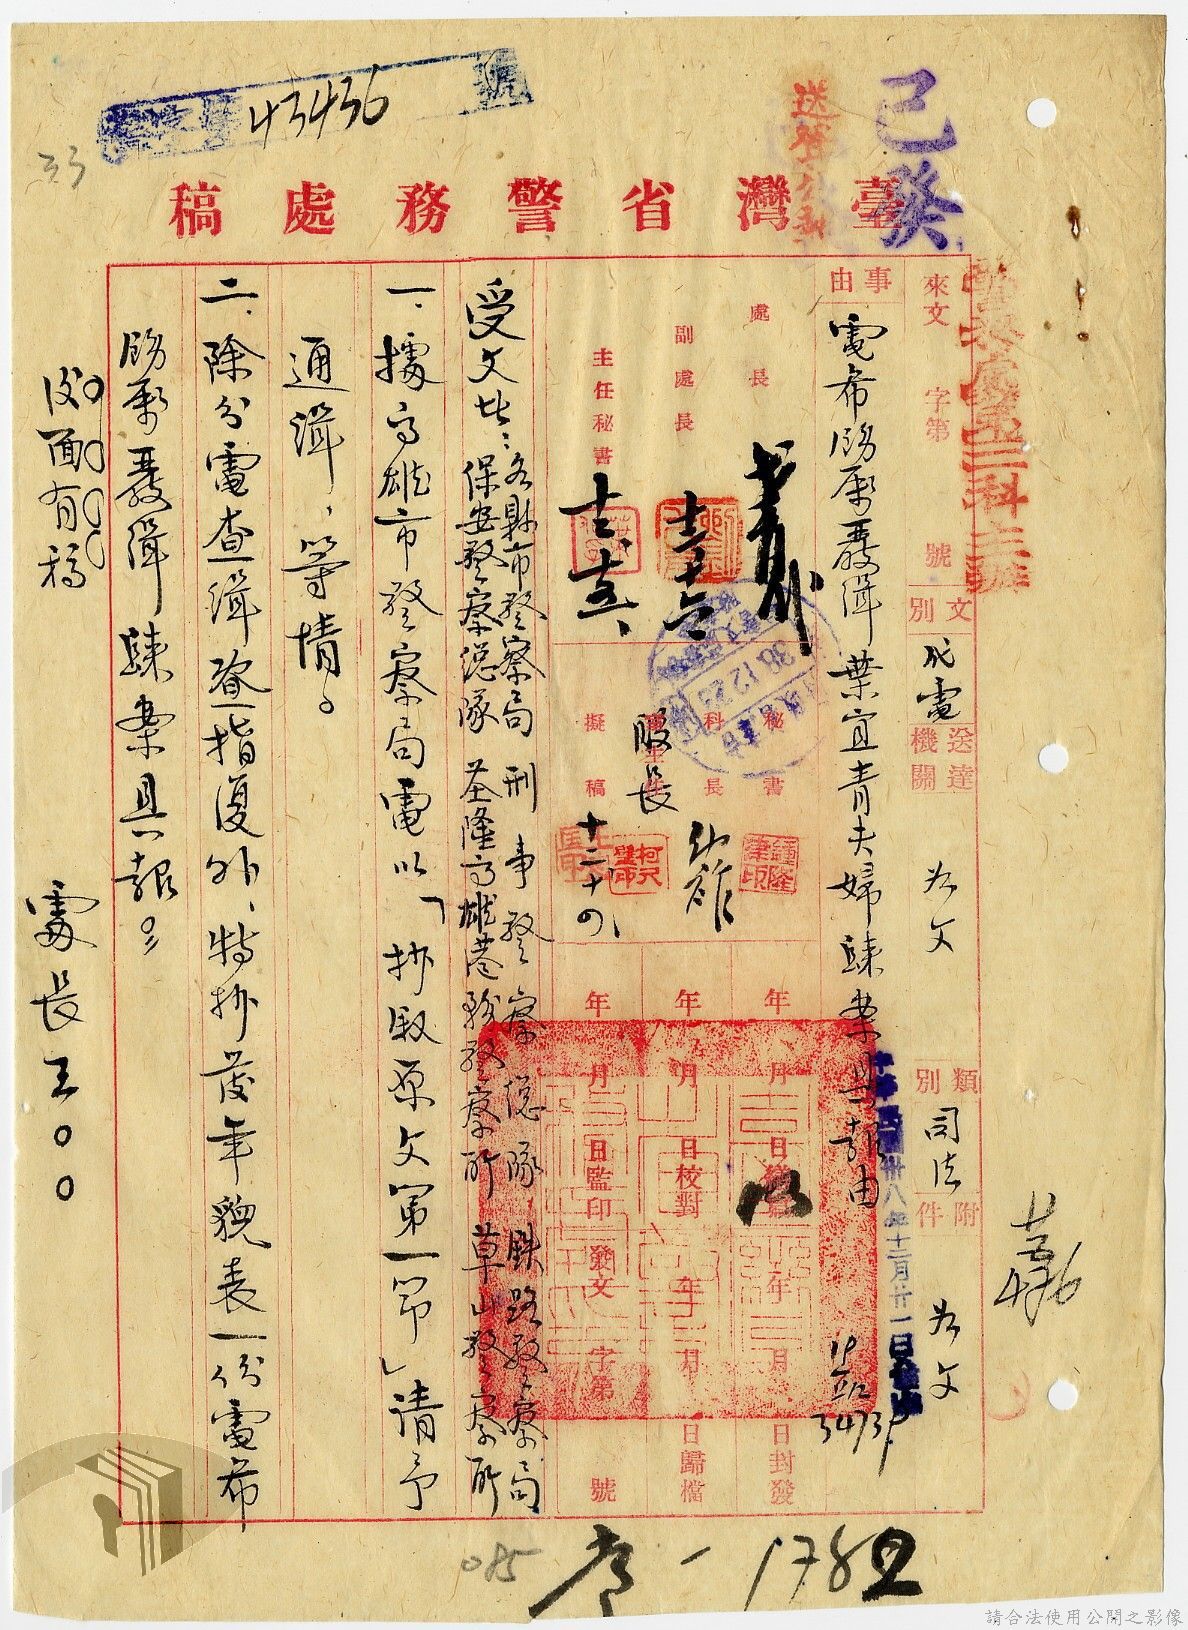 43436
號
送登公報
已發
臺灣省警務處稿
來文 字第 號
文別 代電
送達機關 如文
類別 司法
附件 如文
事由
電希飭屬嚴緝葉宜青夫婦歸案具報由
中華民國卅八年十二月廿一日
處長
副處長
主任秘書
秘書
科長
股長
擬稿
十二、十四、
38.12.23
鍾隆
年 月 日
年 月 日校對
年 月 日監印
年 月 日封發
年 月 日歸檔
發文 字第 號
34737
受文者：各縣市警察局 刑事警察總隊 鐵路警察局
保安警察總隊 基隆高雄港務警察所 草山警察所
一、據高雄市警察局電以「抄敘原文第一節」請予
通緝，等情。
二、除分電查緝暨指復外，特抄發年貌表一份電希
飭屬嚴緝歸案具報。
後面有稿
處長王○○
085
1782
請合法使用公開之影像